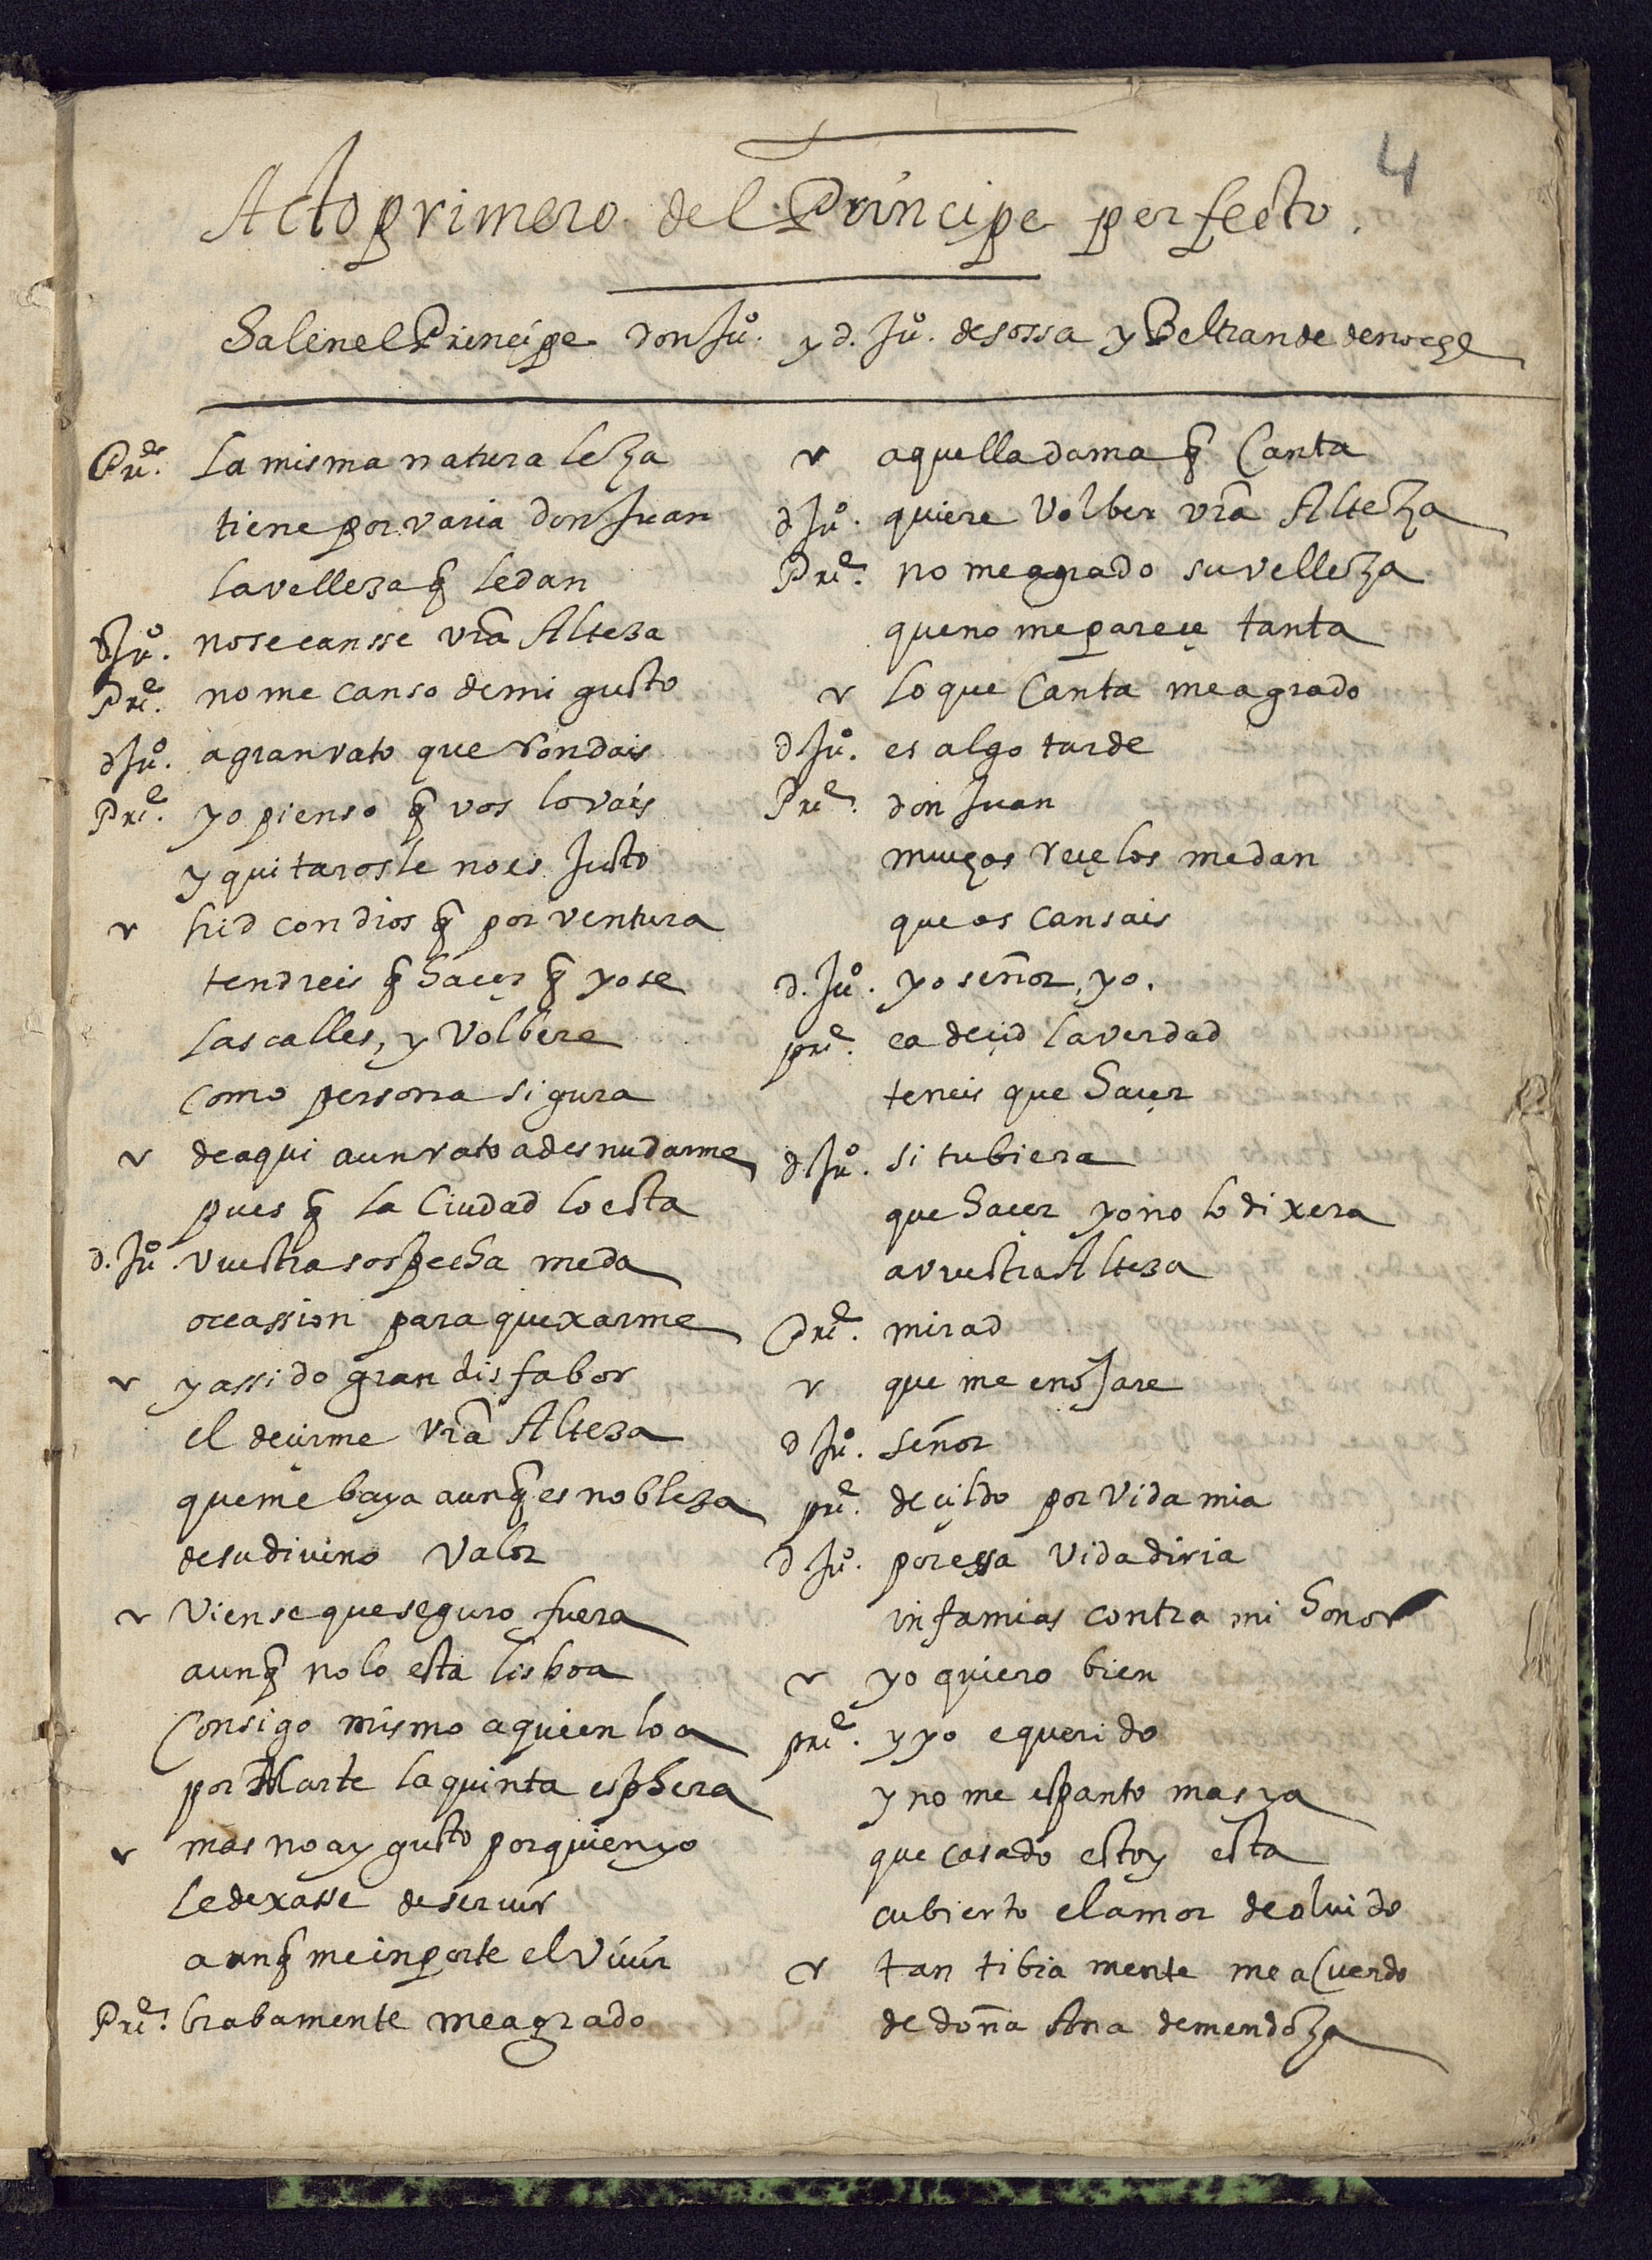 4
Acto primero del Principe perfecto.
Salen el Principe don Juº. y d. Juº. de sossa y Beltran de de noche
Prie. La misma naturaleza
tiene por varia don Juan
la velleza q̃ le dan
d Juº. no se cansse vrã Alteza
Prie. no me canso de mi gusto
d Juº. a gran rato que rondais
Prie. yo pienso q̃ vos lo vais
y quitarosle no es Justo
r hid con dios q̃ por ventura
tendreis q̃ haçer q̃ yo se
las calles, y Volbere
como persona sigura
r de aqui a un rato a desnudarme
pues q̃ la Ciudad lo esta
d. Juº. vuestra sospecha me da
occassion para quexarme
r y assido gran disfabor
el deçirme vrã Alteza
que me baya aunq̃ es nobleza
de su divino Valor
r Vien se que seguro fuera
aunq̃ no lo esta lisboa
Consigo mismo a quien loa
por Marte la quinta esphera
r mas no ay gusto por quien yo
le dexasse de seruir
aunq̃ me inporte el Viuir
Prie. brabamente me agrado
r aquella dama q̃ Canta
d Juº. quiere Volber vrã Alteza
Prie. no me agrado su velleza
que no me pareçe tanta
r lo que Canta me agrado
d Juº. es algo tarde
Prie. don Juan
muchos reçelos me dan
que os cansais
d. Juº. yo señor, yo.
prie. ea deçid la verdad
teneis que haçer
d Juº. si tubiera
que haçer yo no lo dixera
a vuestra Alteza
Prie. mirad
r que me enoJare
d Juº. señor
prie. deçildo por Vida mia
d Juº. por essa Vida diria
infamias contra mi honor
r yo quiero bien
prie. y yo e querido
y no me espanto mas ya
que casado estoy esta
cubierto el amor de oluido
r tan tibia mente me aCuerdo
de doña Ana de mendoza